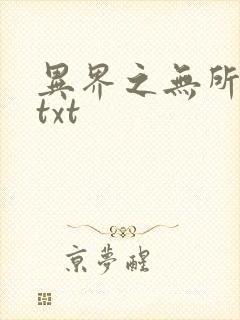 異界之無所
txt
京夢醒